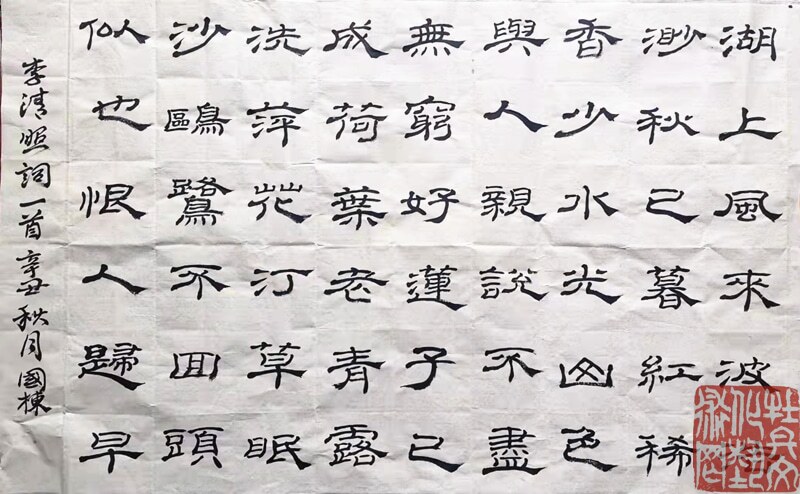 湖上風來波
渺秋已暮紅稀
香少水光山色
與人親說不盡
無窮好蓮子已
成荷葉老青露
洗萍花汀草眠
沙鷗鷺不回頭
似也恨人歸早
李清照詞一首辛丑秋月國棟